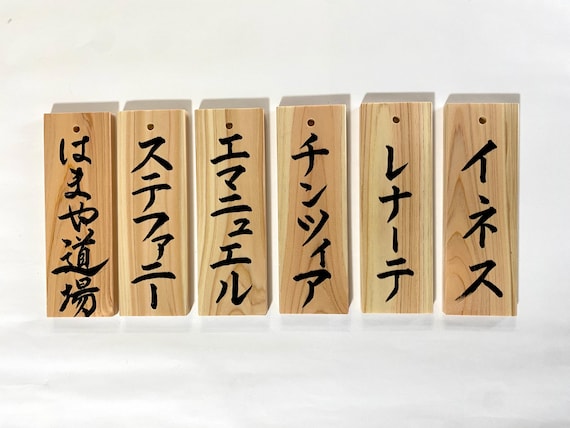 はまや道場
ステファニー
エマニュエル
チンツィア
レナーテ
イネス